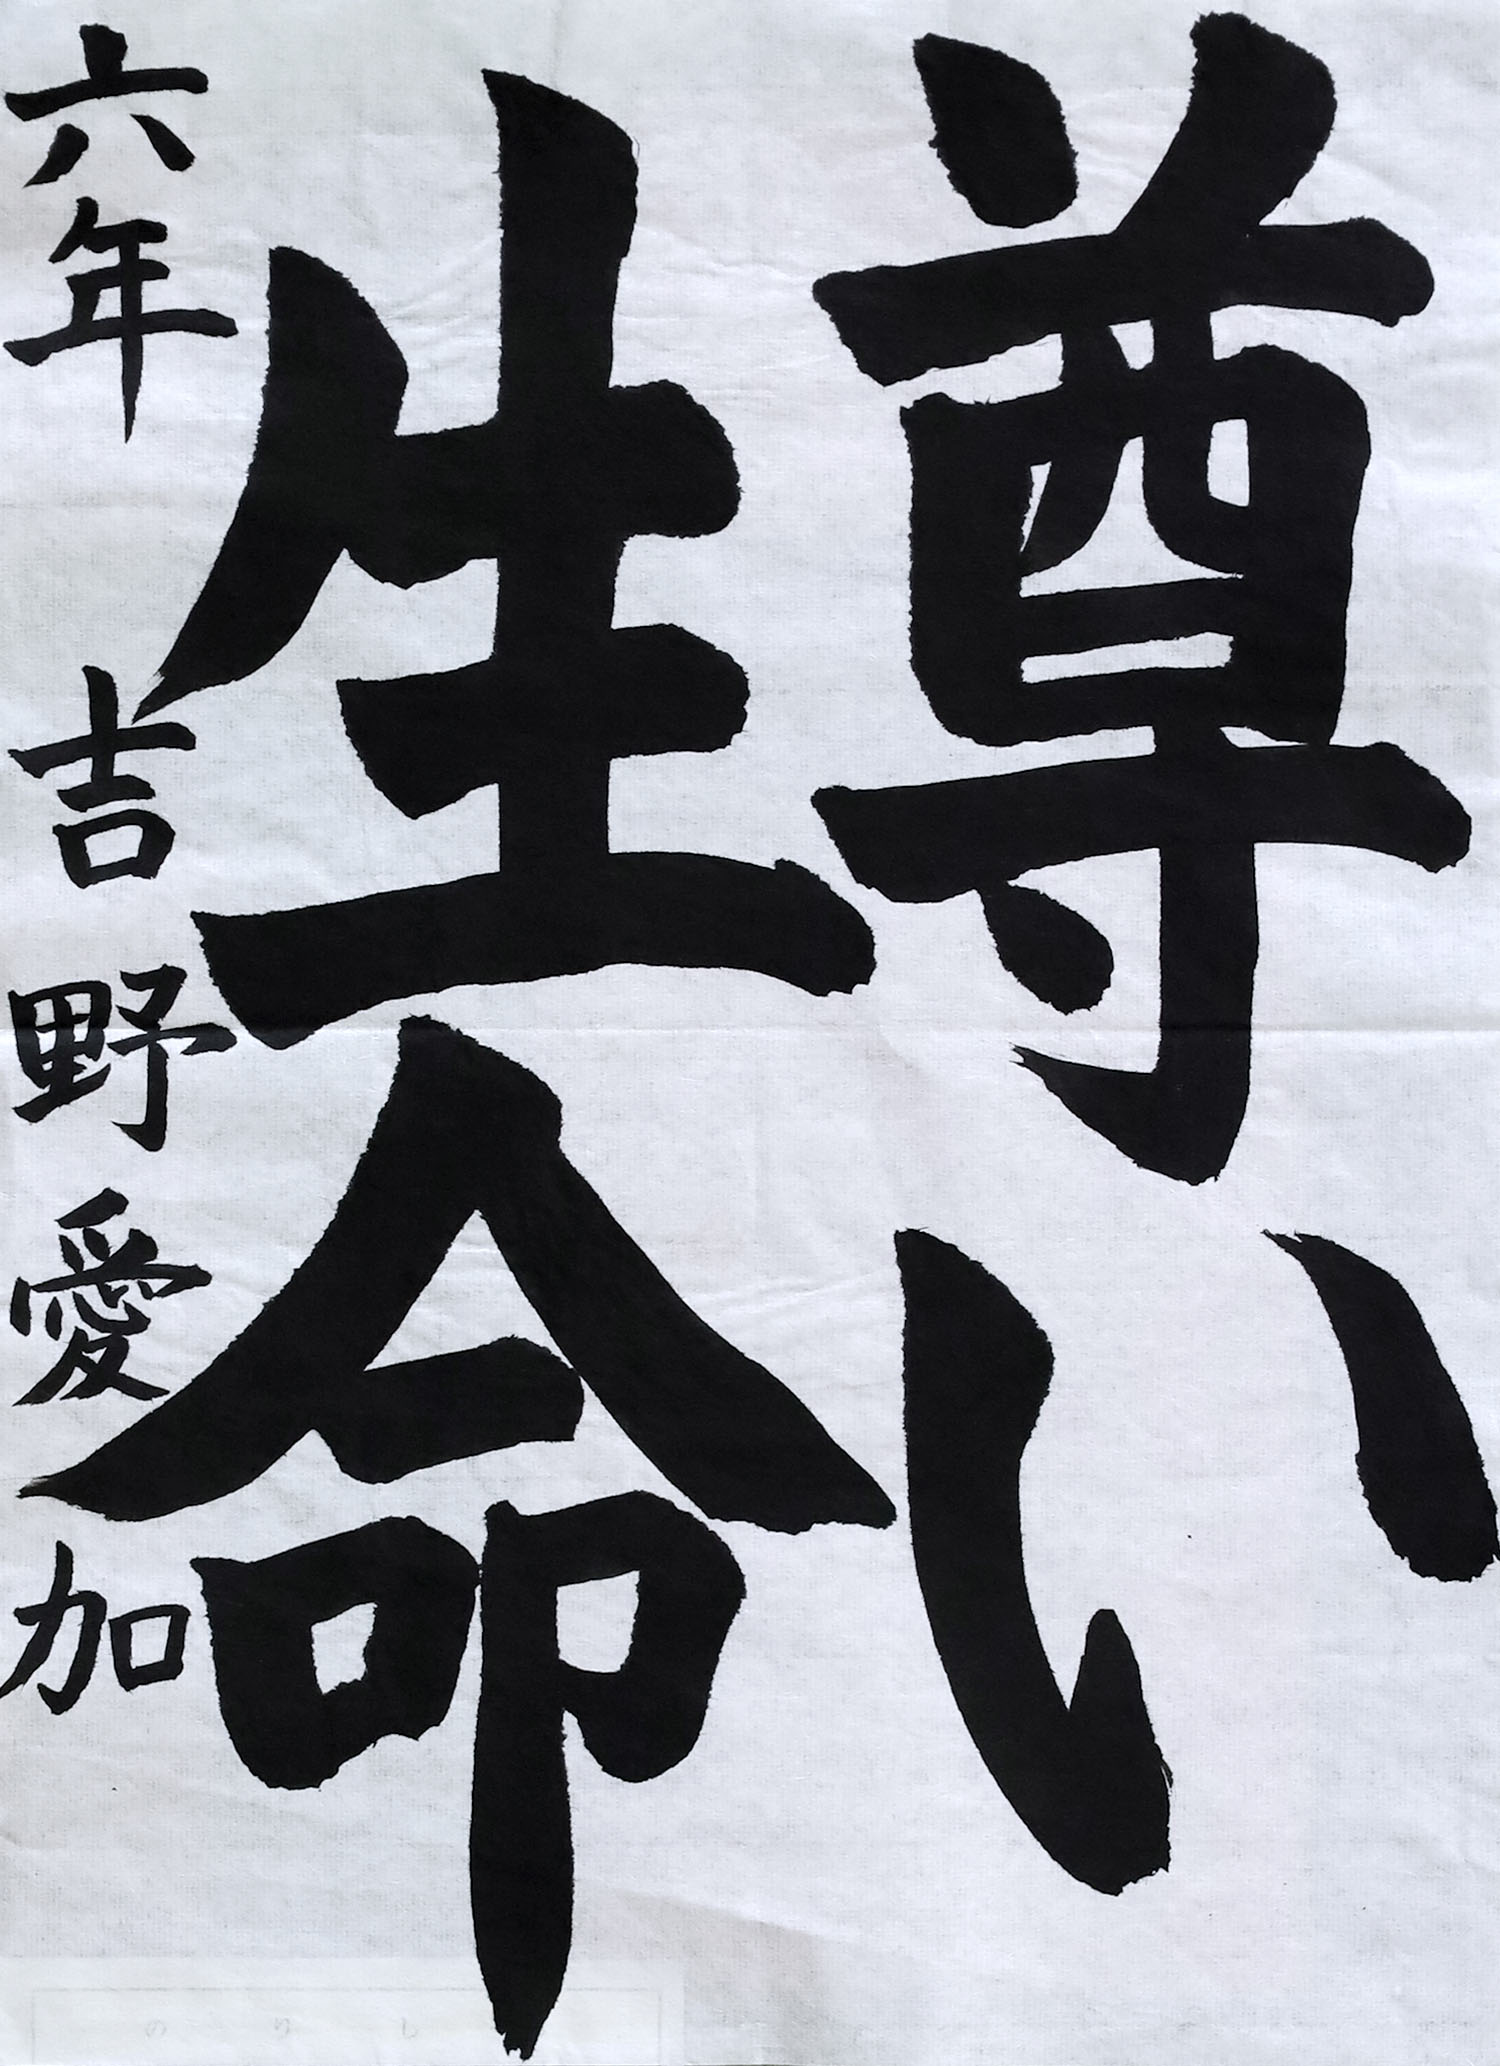 尊い
生命
六年 吉野愛加